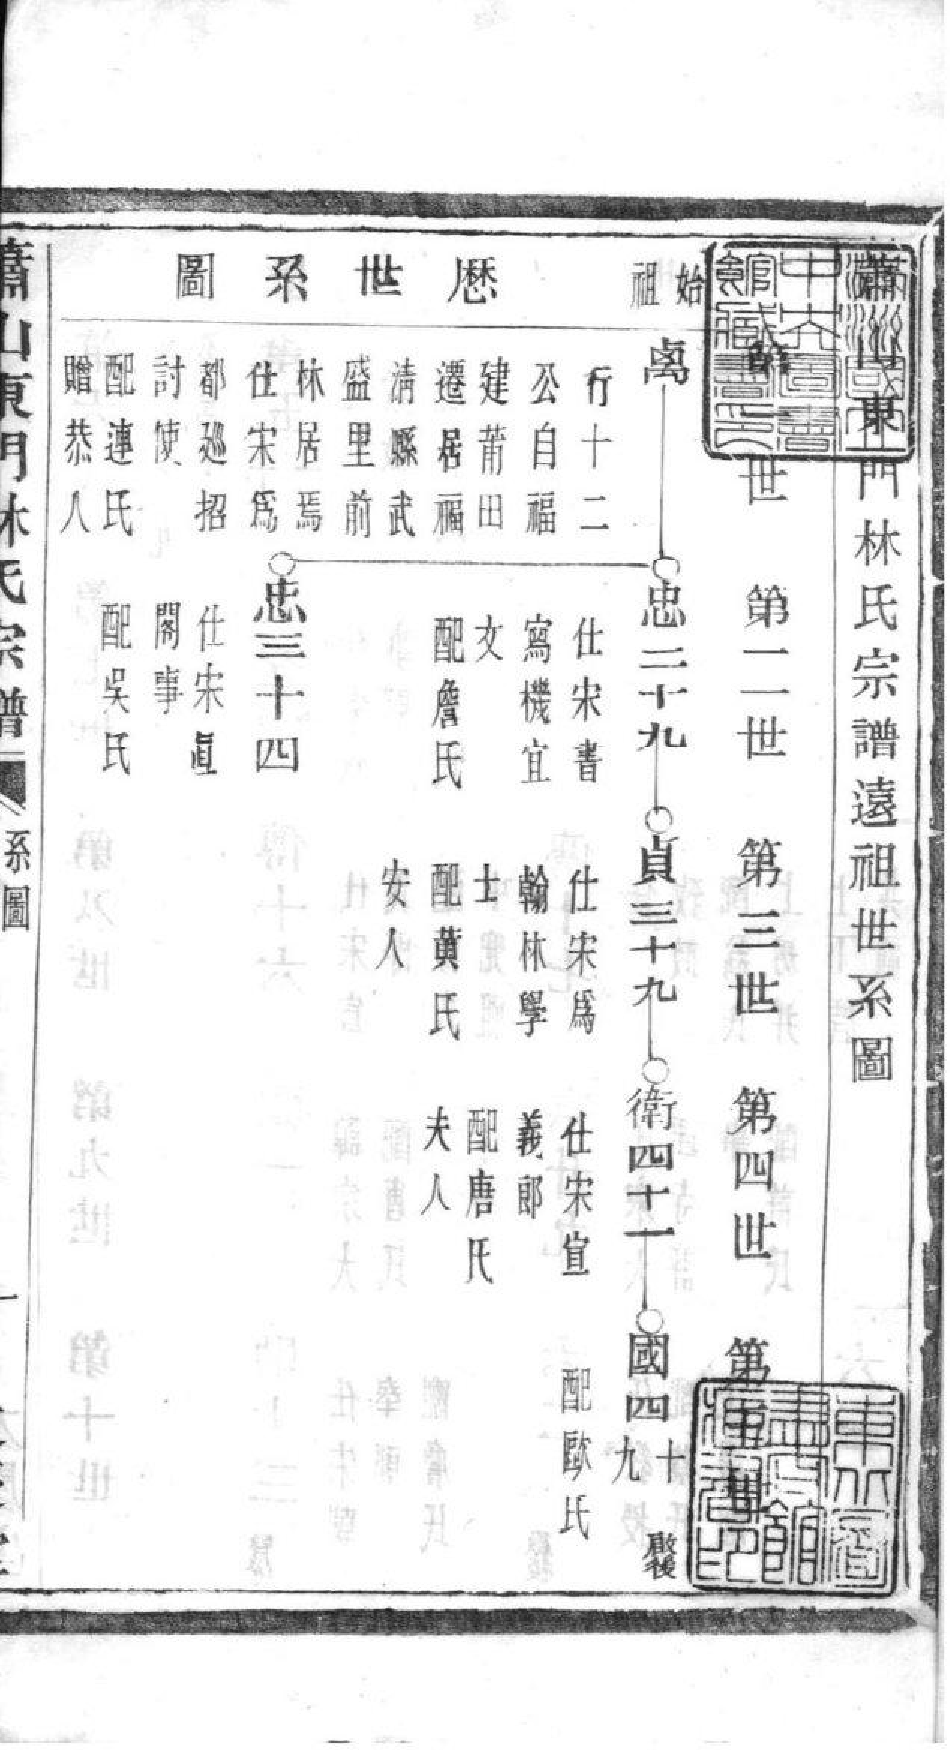 蕭山東門林氏宗譜遠祖世系圖
第一世
第二世
第三世
第四世
第五世
始祖
歷世系圖
禼
行十二
公自福
建莆田
遷居福
淸縣武
盛里前
林居焉
仕宋爲
都廵招
討使
配連氏
贈恭人
忠二十九
仕宋書
寫機宜
文
配詹氏
忠三十四
仕宋直
閣事
配吳氏
貞三十九
仕宋爲
翰林學
士
配黄氏
安人
衛四十一
仕宋宣
義郎
配唐氏
夫人
國四十九
配歐氏
蕭山東門林氏宗譜
系圖
一